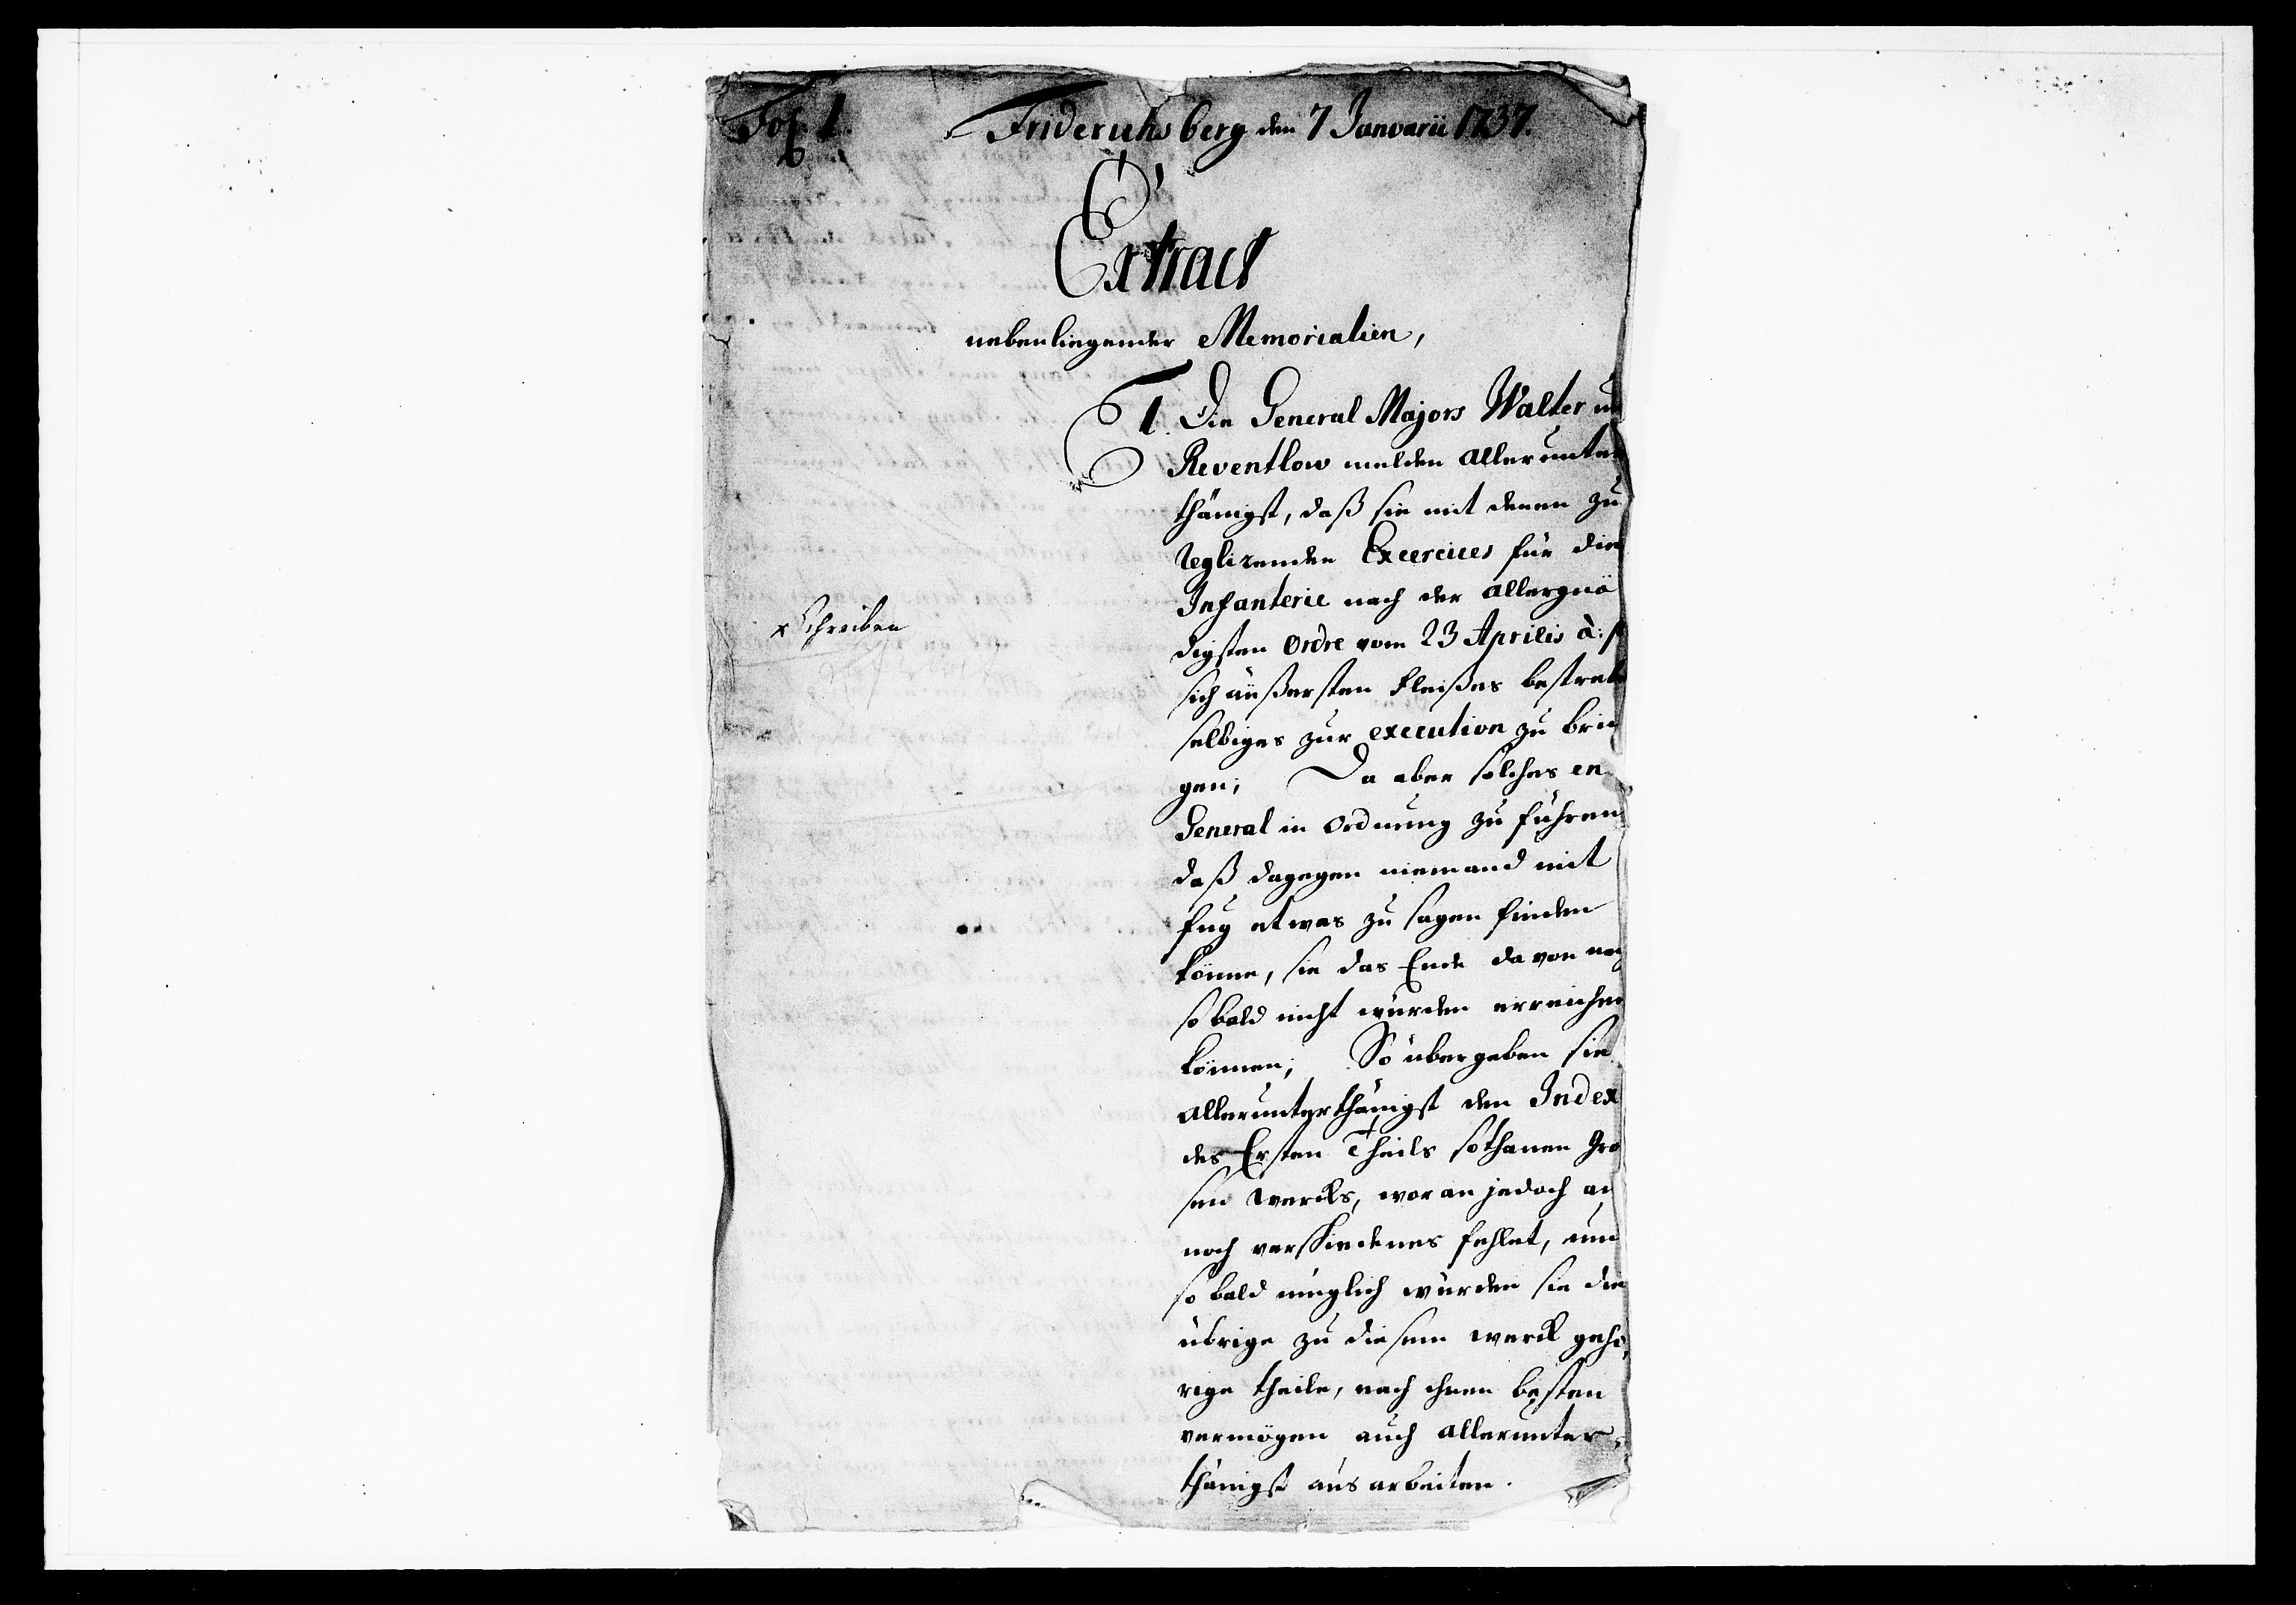 Fol 1. Friderichsberg den 7 Januarii 1737.
Extract
nebenliegender Memorialien,
1. Die General Majors Walter u
Reventlow melden allerunter
thänigst, daß sie mit denen zu
reglirenden Exercices für die
Infanterie nach der allergnä
digsten ordre vom 23 Aprilis à: p
sich äüßersten Fleißes bestreb
selbiges zur execution zu brin
gen; Da aber solches en
General in ordnung zu führen
daß dagegen niemand mit
fug etwas zu sagen finden
könne, sie das Ende davon noch
so bald nicht würden erreichen
können; So übergeben sie
allerunterthänigst den Index
des Ersten Theils sothanen gro
sen wercks, woran jedoch an
noch verschiedenes fehlet, und
so bald müglich würden sie die
übrige zu diesem werck gehö
rige theile, nach ihren besten
vermögen auch allerunter-
thänigst aus arbeiten.
x Schreiben